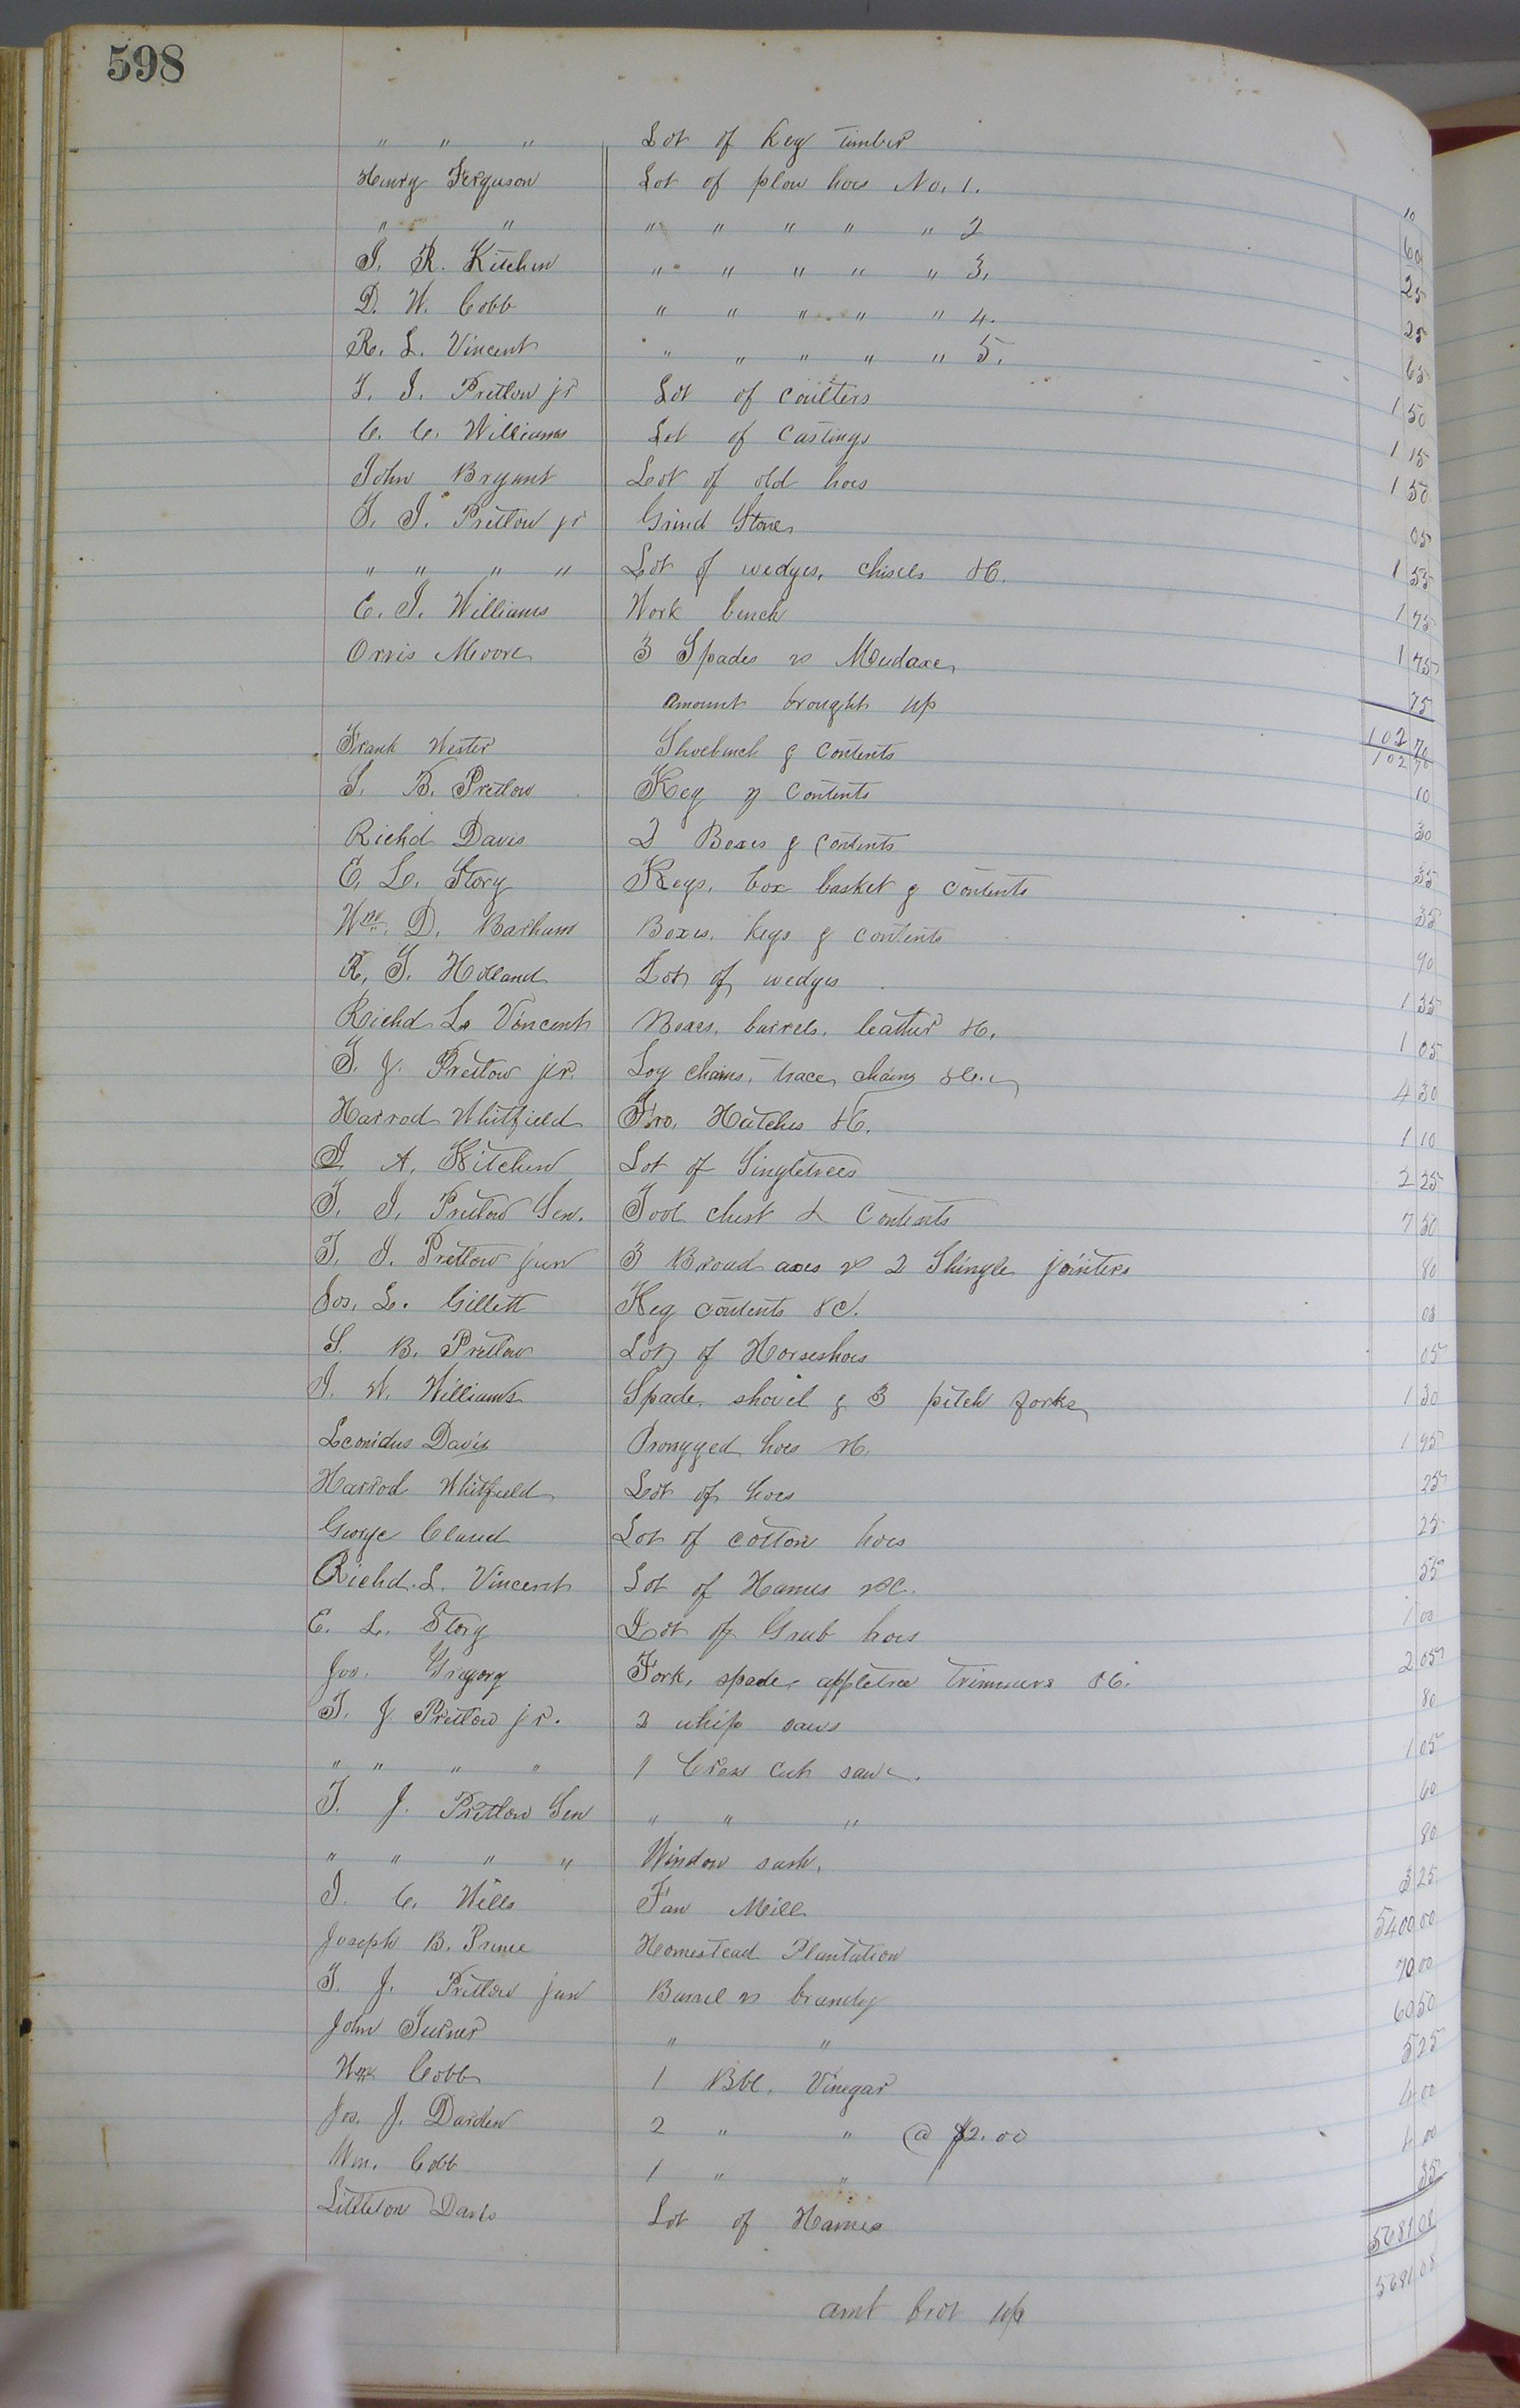 598
" " " Lot of Keg Timber 10
Henry Ferguson Lot of plow hoes No. 1. 60
" " " " " " " 2 25
J. R. Kitchen " " " " " 3. 25
D. W. Cobb " " " " " 4. 65
R. L. Vincent " " " " " 5. 1 50
T. J. Pretlow jr Lot of Coulters 1 15
C. C. Williams Lot of Castings 1 50
John Bryant Lot of old hoes 05
T. J. Pretlow jr Grind Stone 1 55
" " " " Lot of wedges, chisels &C. 1 75
E. J. Williams Work bench 1 75
Orris Moore 3 Spades & 75
amount brought up 102 70
102 70
Frank Wester Shoebench & Contents 10
S. B. Pretlow Keg & Contents 30
Richd Davis 2 Boxes & Contents 35
E. L. Story Kegs, box basket & Contents 35
Wm. D. Barham Boxes, kegs & contents 90
R. T. Holland Lot of wedges 1 35
Richd L. Vincent Boxes, barrels, leather &C. 1 05
T. J. Pretlow jr. Log chains, trace chains &C. 4 30
Harrod Whitfield Fro, Hatches &C. 1 10
J. A. Kitchen Lot of Singletrees 2 25
T. J. Pretlow Sen. Tool chest & Contents 7 50
T. J. Pretlow jun 3 Broad axes & 2 Shingle jointers 80
Jos. L. Gillett Keg contents &C. 08
S. B. Pretlow Lot of Horseshoes 05
J. W. Williams Spade, shovel & 3 pitch forks 1 30
Leonidus Davis Prongged hoes &C. 1 95
Harrod Whitfield Lot of hoes 25
George Claud Lot of cotton hoes 25
Richd. L. Vincent Lot of Hames &C. 55
E. L. Story Lot of Grub hoes 1 00
Jno. Gregory Fork, spade, appletree trimmers &C. 2 05
T. J Pretlow jr. 2 whip saws 80
" " " " 1 Cross cut saw. 1 05
T. J. Pretlow Sen " " " 60
" " " " Window sash, 80
J. C. Wills Fan Mill 3 25
Joseph B. Prince Homestead Plantation 5400 00
T. J. Pretlow jun Barrel & brandy 70 00
John Turner " " 60 50
Wm Cobb 1 Bbl. Vinegar 5 25
Jos. J. Darden 2 " " @ $2.00 4 00
Wm. Cobb 1 " " 4 00
Littleton Davis Lot of Hames 35
5681 08
amt brot up 5681 08